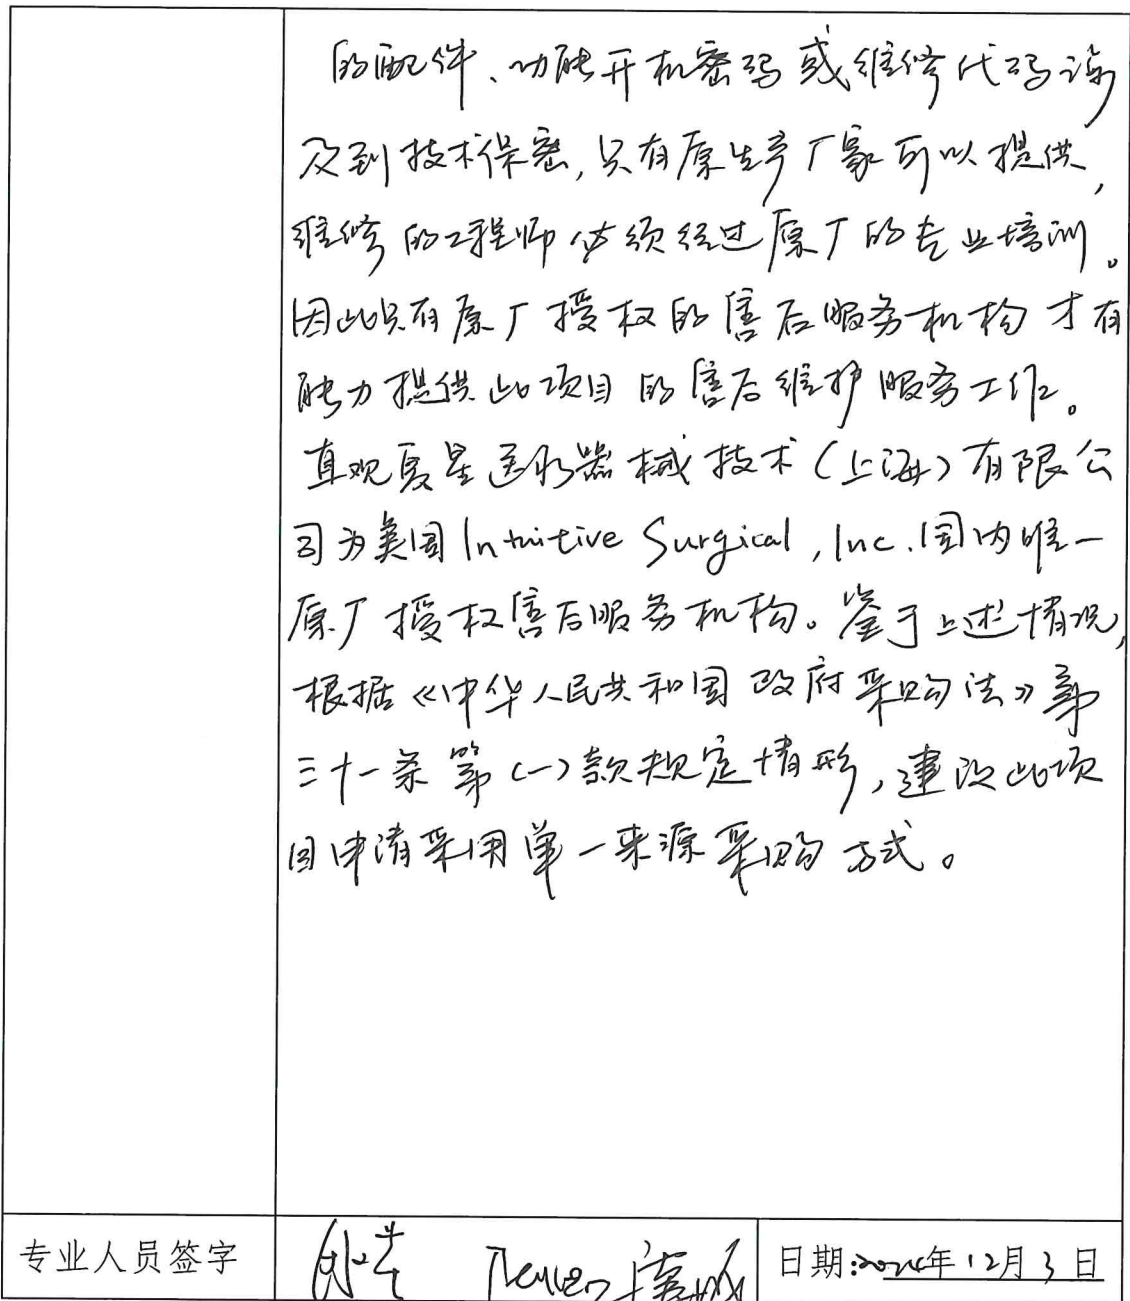 的配件、功能开机密码或维修代码涉
及到技术保密,只有原生产厂家可以提供,
维修的工程师必须经过原厂的专业培训。
因此只有原厂授权的售后服务机构才有
能力提供此项目的售后维护服务工作。
直观复星医疗器械技术(上海)有限公
司为美国Intuitive Surgical, Inc.国内唯一
原厂授权售后服务机构。鉴于上述情况,
根据《中华人民共和国政府采购法》第
三十一条第(一)款规定情形,建议此项
目申请采用单一来源采购方式。
专业人员签字
日期:2024年12月3日